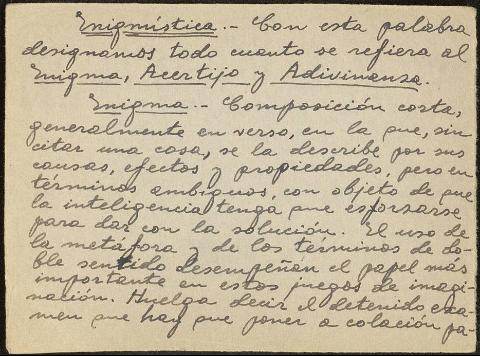 Enigmística.- Con esta palabra
designamos todo cuanto se refiera al
Enigma, Acertijo y Adivinanza.
Enigma.- Composición corta,
generalmente en verso, en la que, sin
citar una cosa, se la describe por sus
causas, efectos y propiedades, pero en
términos ambiguos, con objeto de que
la inteligencia tenga que esforzarse
para dar con la solución. El uso de
la metáfora y de los términos de do-
ble sentido desempeñan el papel más
importante en estos juegos de imagi-
nación. Huelga decir el detenido exa-
men que hay que poner a colación pa-